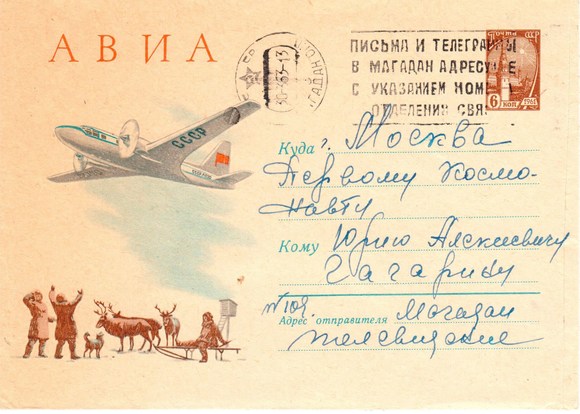 АВИА
ПИСЬМА И ТЕЛЕГРАММЫ
В МАГАДАН АДРЕСУЙТЕ
С УКАЗАНИЕМ НОМЕРА
ОТДЕЛЕНИЯ СВЯЗИ
30-4 63-13
ПОЧТА СССР
6 КОП 1961
СССР
Куда г. Москва
Первому Космо-
навту
Кому Юрию Алексиевичу
Гагарину
№109
Адрес отправителя Могадан
телевидение